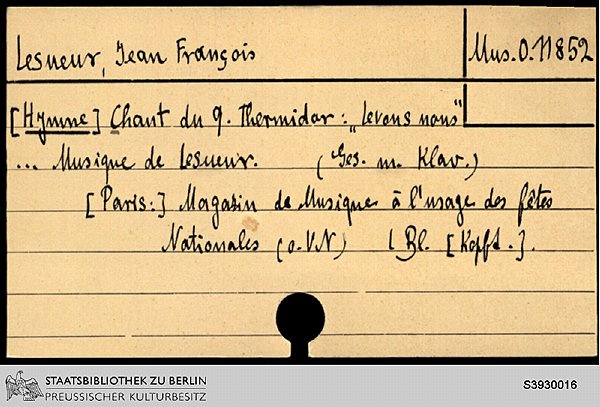 Lesueur, Jean François
Mus. O. 11852
[Hymne] Chant du 9. Thermidor: „Levons nous"
... Musique de Lesueur. (Ges. m. Klav.)
[Paris:] Magasin de Musique à l'usage des fêtes
Nationales (o. VN) 1 Bl. [Kopft.].
STAATSBIBLIOTHEK ZU BERLIN
PREUSSISCHER KULTURBESITZ
S3930016